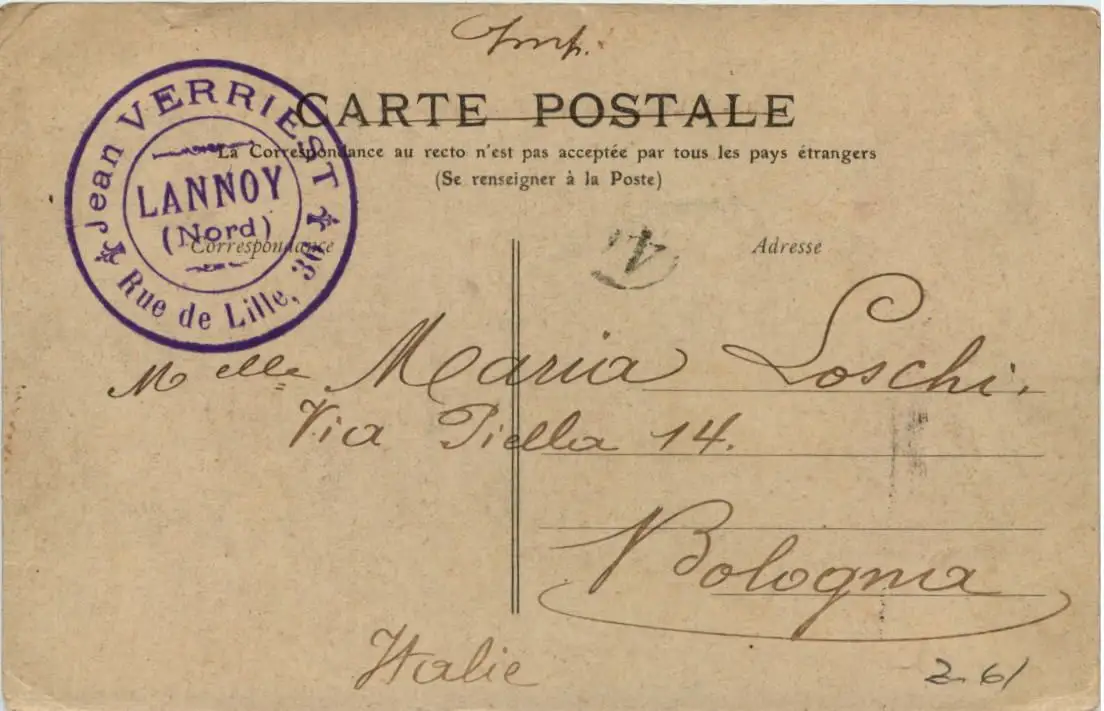 Imp.
CARTE POSTALE
La Correspondance au recto n'est pas acceptée par tous les pays étrangers
(Se renseigner à la Poste)
Jean VERRIEST
LANNOY
(Nord)
Rue de Lille, 36
Correspondance
Adresse
Melle Maria Loschi.
Via Piella 14.
Bologna
Italie